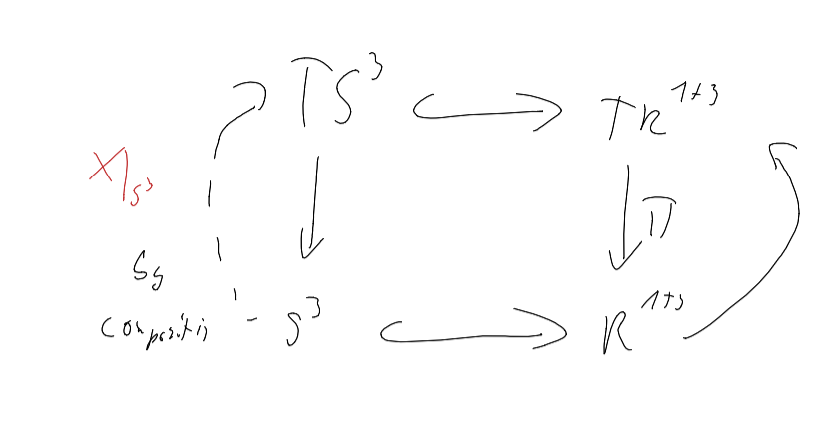 TS³ TR¹⁺³
X|S³
π
by
composition S³ R¹⁺³